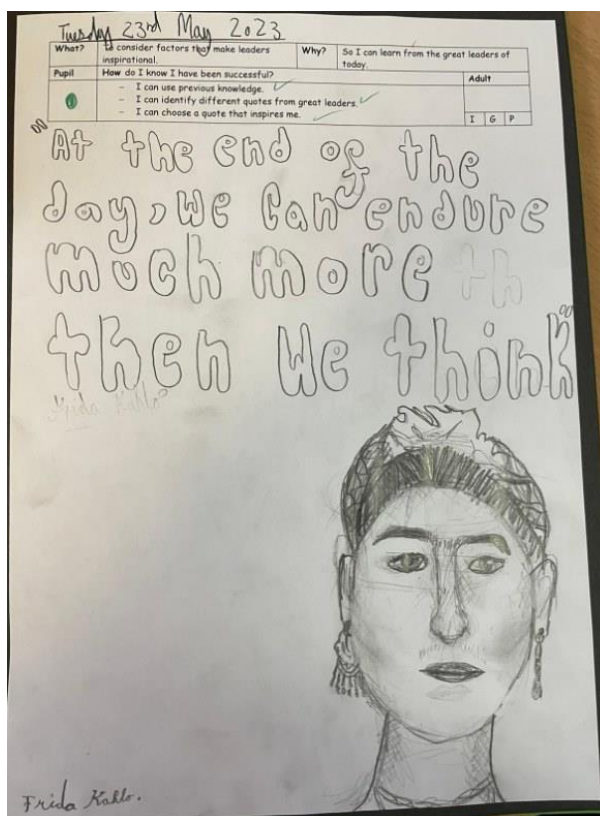 Tuesday 23rd May 2023
What? To consider factors that make leaders inspirational. Why? So I can learn from the great leaders of today.
Pupil How do I know I have been successful? Adult
- I can use previous knowledge.
- I can identify different quotes from great leaders.
- I can choose a quote that inspires me.
I G P
"At the end of the
day, we can endure
much more th
then we think"
Frida Kahlo
Frida Kahlo.